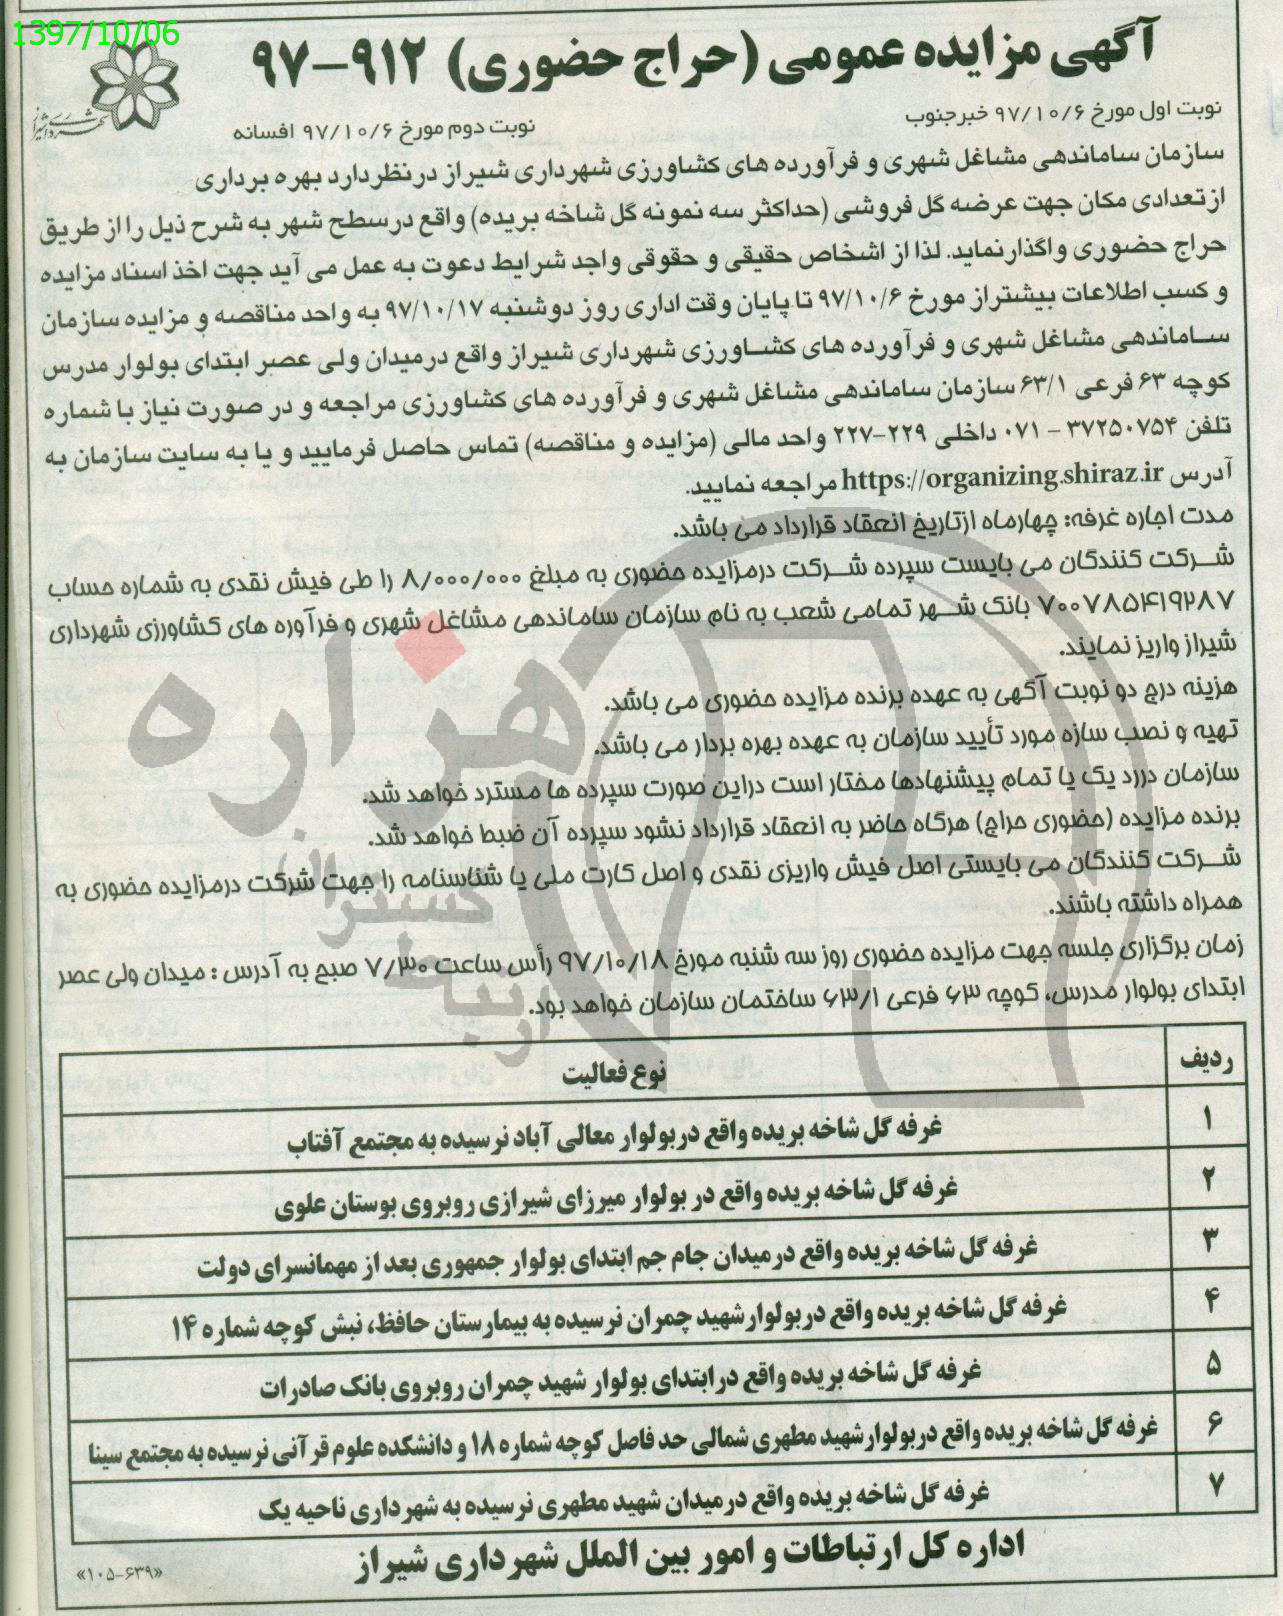 1397/10/06
آگهی مزایده عمومی (حراج حضوری) ۹۱۲-۹۷
شهرداری شیراز
نوبت اول مورخ ۹۷/۱۰/۶ خبرجنوب
نوبت دوم مورخ ۹۷/۱۰/۶ افسانه
سازمان ساماندهی مشاغل شهری و فرآورده های کشاورزی شهرداری شیراز درنظردارد بهره برداری
ازتعدادی مکان جهت عرضه گل فروشی (حداکثر سه نمونه گل شاخه بریده) واقع درسطح شهر به شرح ذیل را از طریق
حراج حضوری واگذارنماید. لذا از اشخاص حقیقی و حقوقی واجد شرایط دعوت به عمل می آید جهت اخذ اسناد مزایده
و کسب اطلاعات بیشتراز مورخ ۹۷/۱۰/۶ تا پایان وقت اداری روز دوشنبه ۹۷/۱۰/۱۷ به واحد مناقصه و مزایده سازمان
ساماندهی مشاغل شهری و فرآورده های کشاورزی شهرداری شیراز واقع درمیدان ولی عصر ابتدای بولوار مدرس
کوچه ۶۳ فرعی ۶۳/۱ سازمان ساماندهی مشاغل شهری و فرآورده های کشاورزی مراجعه و در صورت نیاز با شماره
تلفن ۳۷۲۵۰۷۵۴ - ۰۷۱ داخلی ۲۲۹-۲۲۷ واحد مالی (مزایده و مناقصه) تماس حاصل فرمایید و یا به سایت سازمان به
آدرس https://organizing.shiraz.ir مراجعه نمایید.
مدت اجاره غرفه: چهارماه ازتاریخ انعقاد قرارداد می باشد.
شرکت کنندگان می بایست سپرده شرکت درمزایده حضوری به مبلغ ۸/۰۰۰/۰۰۰ را طی فیش نقدی به شماره حساب
۷۰۰۷۸۵۴۱۹۲۸۷ بانک شهر تمامی شعب به نام سازمان ساماندهی مشاغل شهری و فرآوره های کشاورزی شهرداری
شیراز واریز نمایند.
هزینه درج دو نوبت آگهی به عهده برنده مزایده حضوری می باشد.
تهیه و نصب سازه مورد تأیید سازمان به عهده بهره بردار می باشد.
سازمان دررد یک یا تمام پیشنهادها مختار است دراین صورت سپرده ها مسترد خواهد شد.
برنده مزایده (حضوری حراج) هرگاه حاضر به انعقاد قرارداد نشود سپرده آن ضبط خواهد شد.
شرکت کنندگان می بایستی اصل فیش واریزی نقدی و اصل کارت ملی یا شناسنامه را جهت شرکت درمزایده حضوری به
همراه داشته باشند.
زمان برگزاری جلسه جهت مزایده حضوری روز سه شنبه مورخ ۹۷/۱۰/۱۸ رأس ساعت ۷/۳۰ صبح به آدرس : میدان ولی عصر
ابتدای بولوار مدرس، کوچه ۶۳ فرعی ۶۳/۱ ساختمان سازمان خواهد بود.
هزاره
ارتباط گستران
ردیف نوع فعالیت
۱ غرفه گل شاخه بریده واقع دربولوار معالی آباد نرسیده به مجتمع آفتاب
۲ غرفه گل شاخه بریده واقع در بولوار میرزای شیرازی روبروی بوستان علوی
۳ غرفه گل شاخه بریده واقع درمیدان جام جم ابتدای بولوار جمهوری بعد از مهمانسرای دولت
۴ غرفه گل شاخه بریده واقع دربولوارشهید چمران نرسیده به بیمارستان حافظ، نبش کوچه شماره ۱۴
۵ غرفه گل شاخه بریده واقع درابتدای بولوار شهید چمران روبروی بانک صادرات
۶ غرفه گل شاخه بریده واقع دربولوارشهید مطهری شمالی حد فاصل کوچه شماره ۱۸ و دانشکده علوم قرآنی نرسیده به مجتمع سینا
۷ غرفه گل شاخه بریده واقع درمیدان شهید مطهری نرسیده به شهرداری ناحیه یک
اداره کل ارتباطات و امور بین الملل شهرداری شیراز
«۱۰۵-۶۳۹»